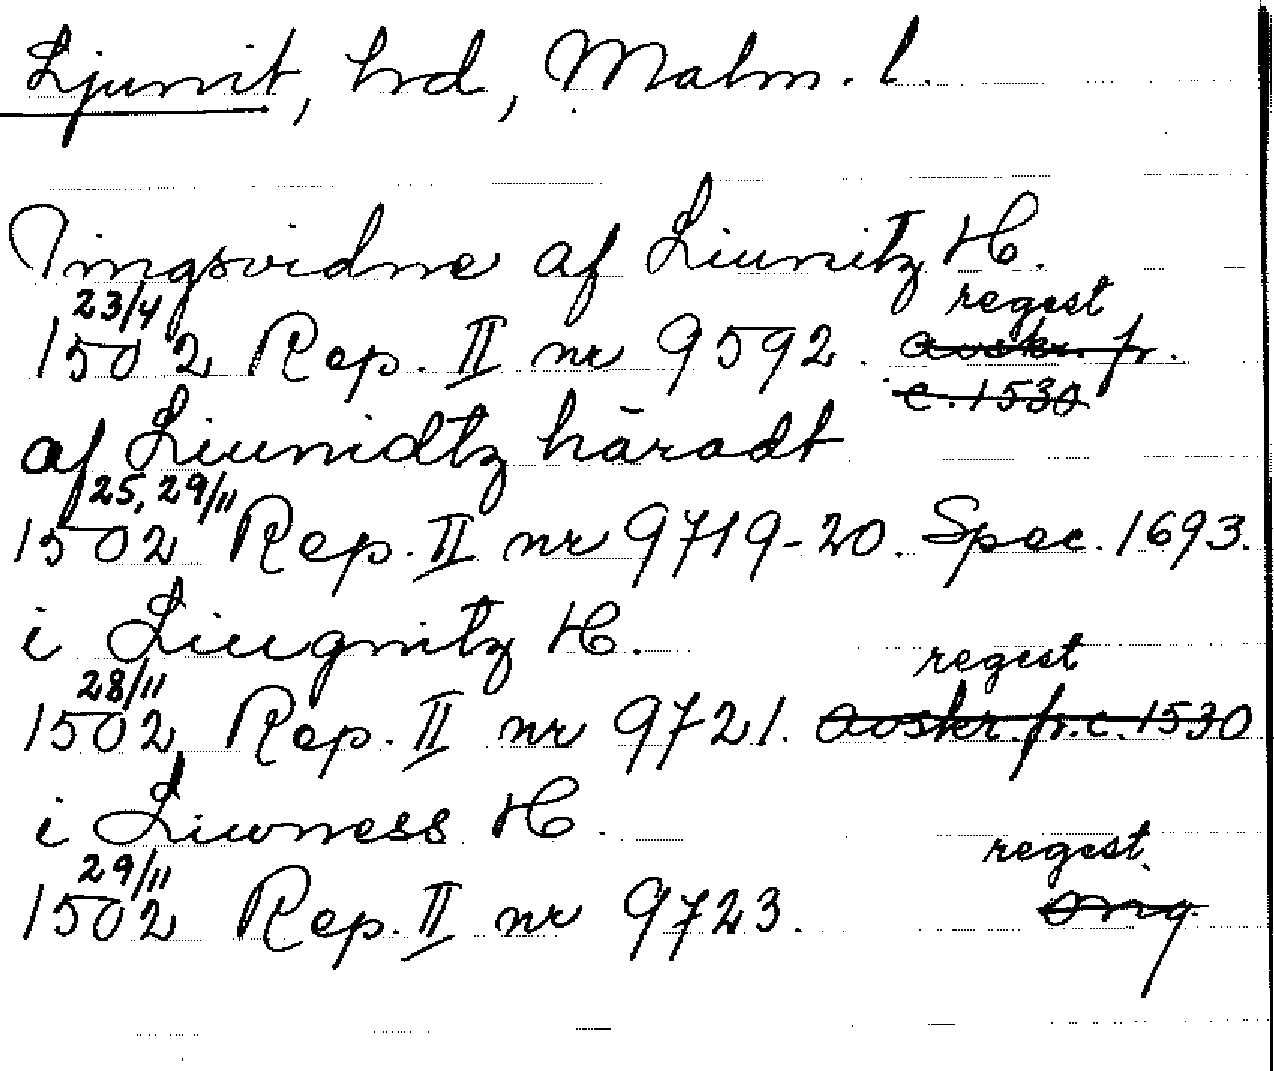 Ljunit, hrd, Malm. l.
Tingsvidne af Liunitz H.
23/4 regest
1502 Rep. II nr 9592. avskr. fr.
c. 1530
af Liunidtz häradt
25, 29/11
1502 Rep. II nr 9719-20. Spec. 1693.
i Liugnitz H.
28/11 regest
1502 Rep. II nr 9721. avskr. fr. c. 1530
i Liwness H.
29/11 regest.
1502 Rep. II nr 9723. orig.